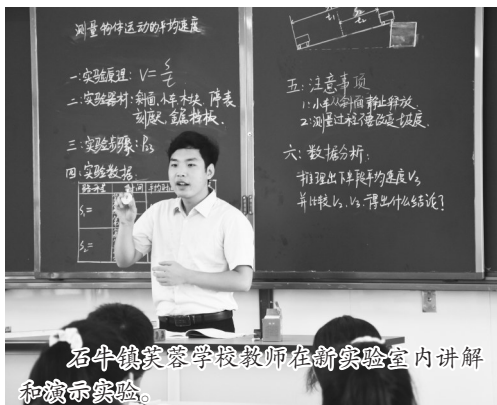 测量物体运动的平均速度
一:实验原理: V=s/t
二:实验器材:斜面、小车、木块、停表
刻度尺、金属挡板.
三:实验步骤: P23
四:实验数据:
路程 时间 平均
S₁=
S₂=
t₁
五:注意事项
1:小车从斜面静止释放.
2:测量过程不要改变坡度.
六:数据分析:
推理出下半段平均速度V₃
并比较V₁、V₃、得出什么结论?
石牛镇芙蓉学校教师在新实验室内讲解
和演示实验。